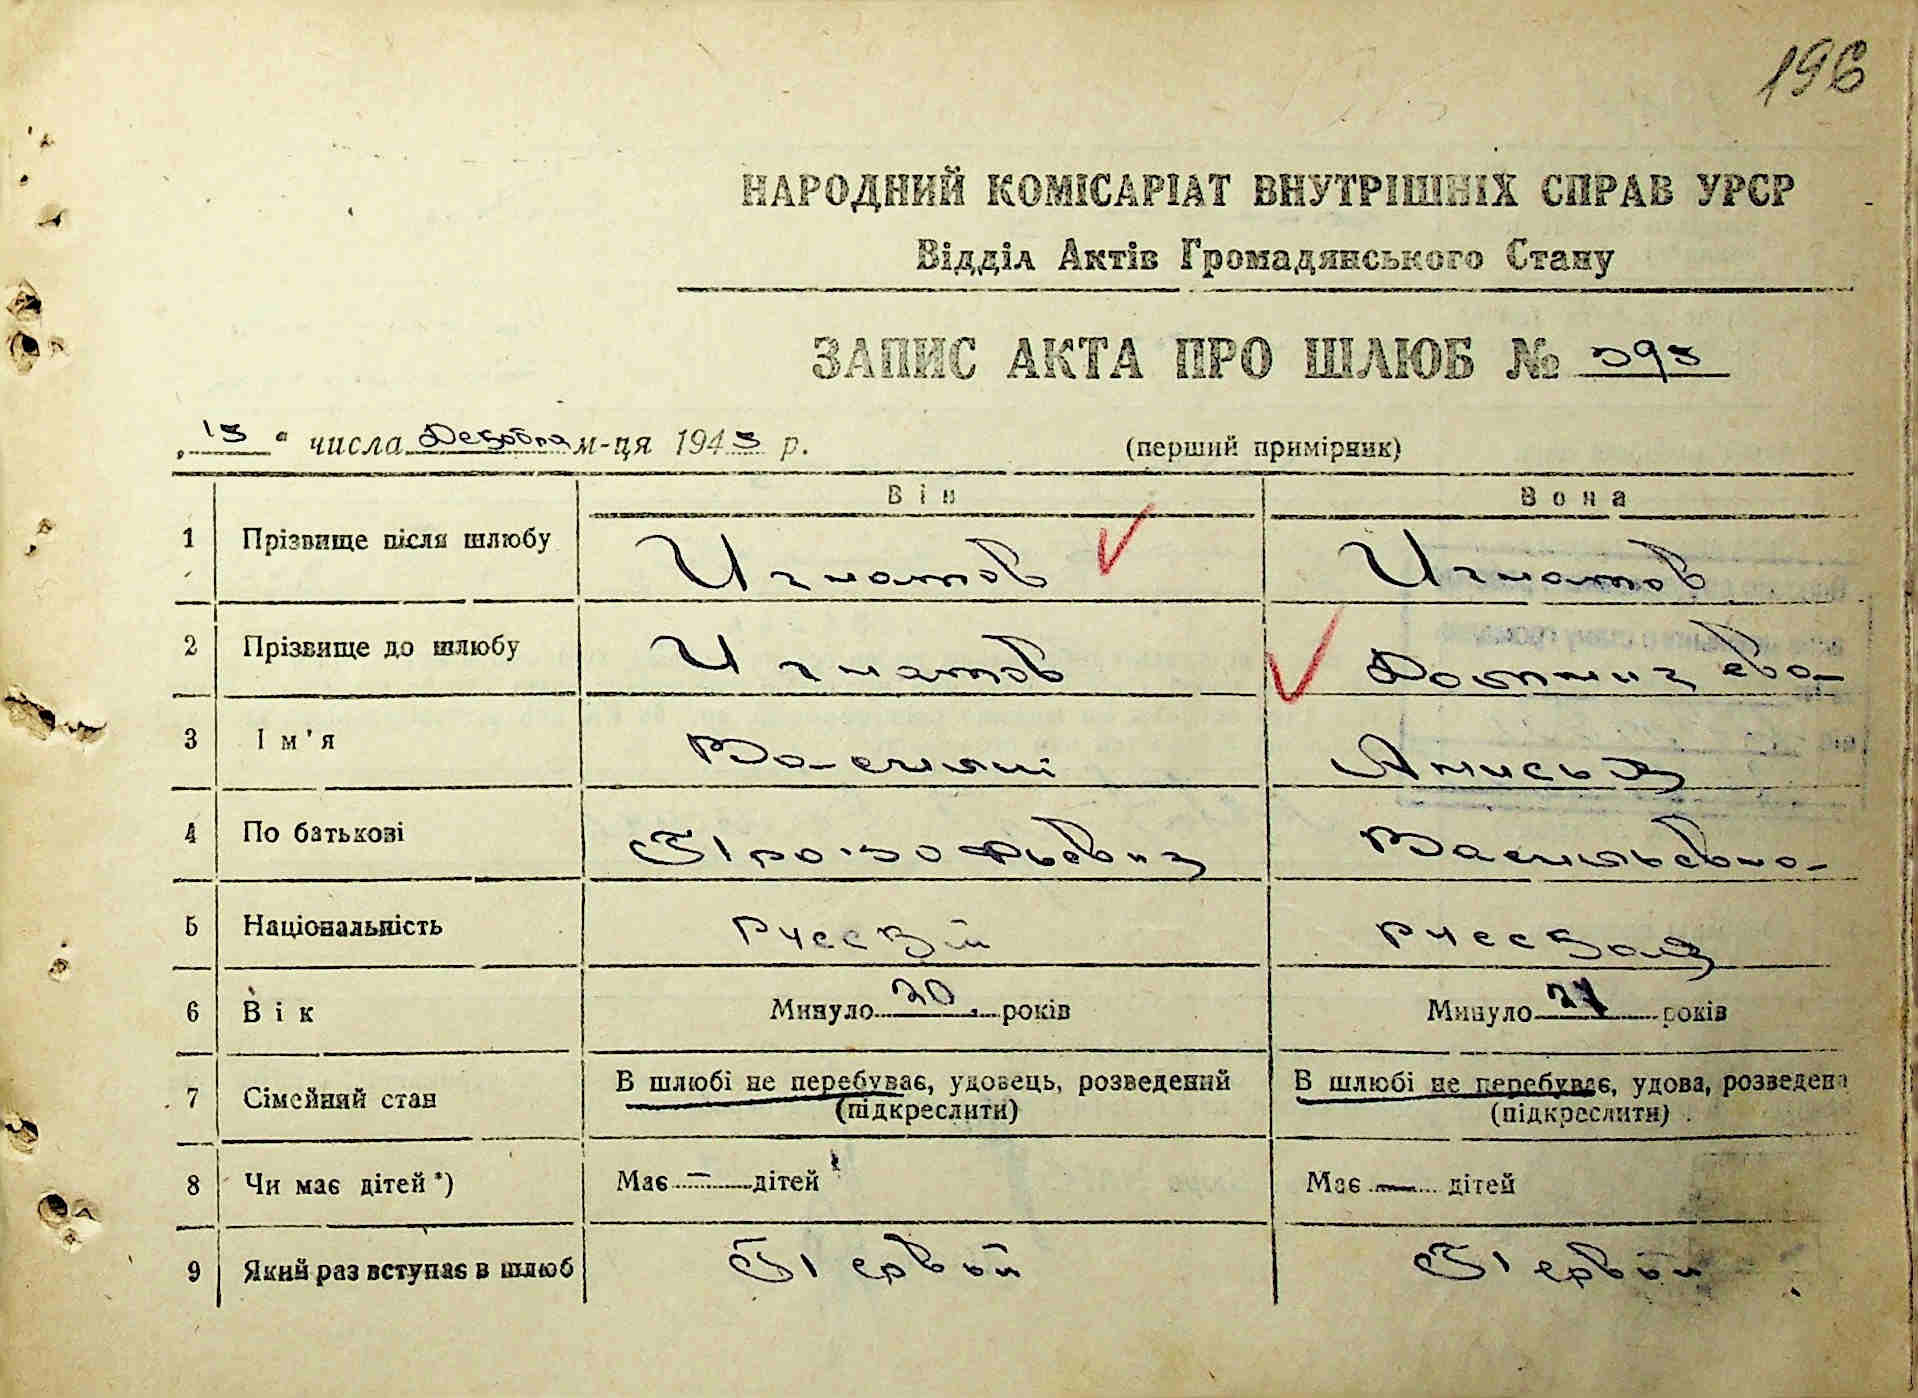 196
НАРОДНИЙ КОМІСАРІАТ ВНУТРІШНІХ СПРАВ УРСР
Відділ Актів Громадянського Стану
ЗАПИС АКТА ПРО ШЛЮБ № 393
„13“ числа Декабря м-ця 1943 р. (перший примірник)
Він Вона
1 Прізвище після шлюбу Игнатов Игнатов
2 Прізвище до шлюбу Игнатов
3 Ім'я Василий Анисья
4 По батькові Прокофьевич Васильевна
5 Національність Русский Русская
6 Вік Минуло 20 років Минуло років
7 Сімейний стан В шлюбі не перебуває, удовець, розведений (підкреслити) В шлюбі не перебуває, удова, розведена (підкреслити)
8 Чи має дітей *) Має — дітей Має — дітей
9 Який раз вступає в шлюб Первый Первый